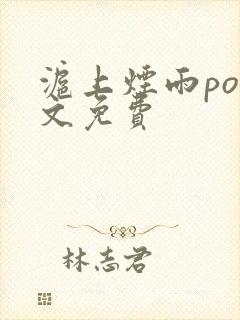 滬上煙雨po
文免費
林志君